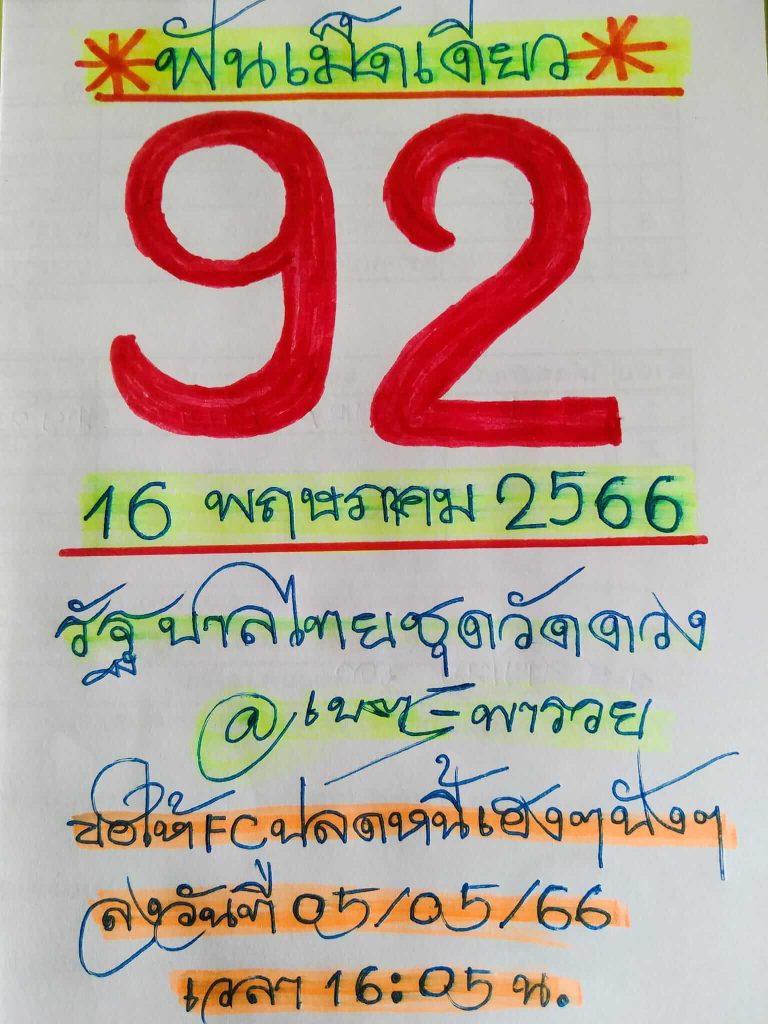 *ฟันเม็ดเดียว*
92
16 พฤษภาคม 2566
รัฐบาลไทยชุดวัดดวง
พารวย
ขอให้FCปลดหนี้เฮงๆปังๆ
ลงวันที่ 05/05/66
เวลา 16:05 น.